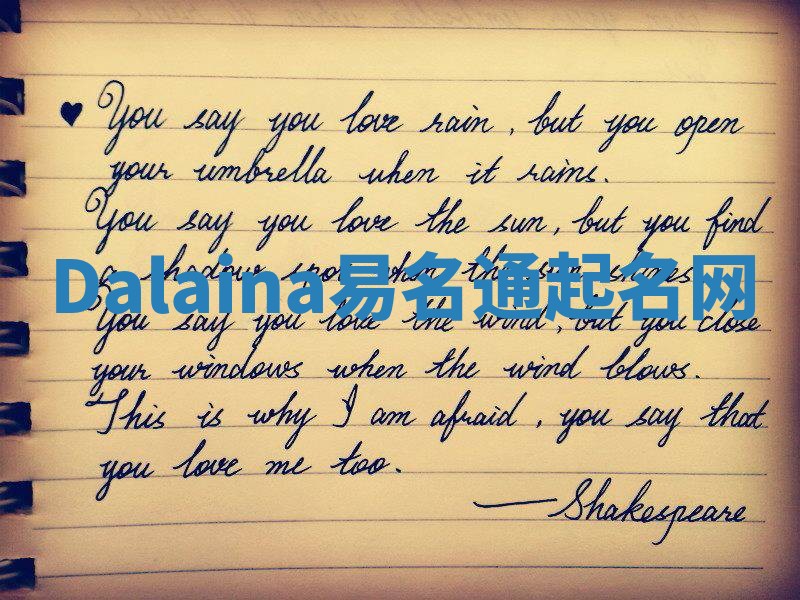 ♥ You say you love rain, but you open
your umbrella when it rains.
You say you love the sun, but you find
a shadow spot when the sun shines.
Dalaina易名通起名网
You say you love the wind, but you close
your windows when the wind blows.
This is why I am afraid, you say that
you love me too.
—Shakespeare